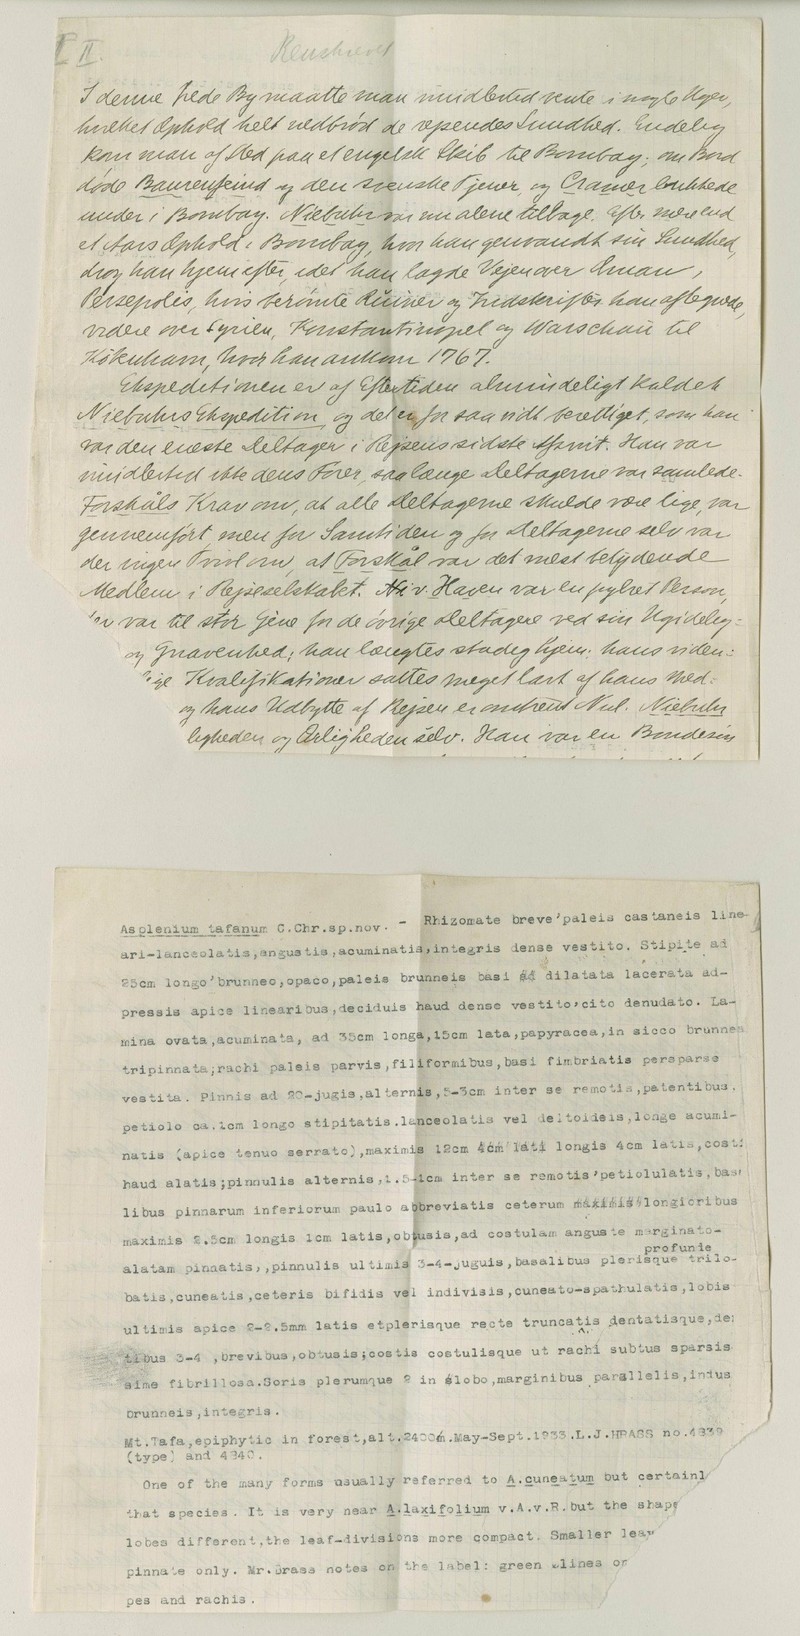 II.
I denne hede By maatte man imidlertid vente i nogle Uger,
hvilket Ophold helt nedbrød de rejsendes Sundhed. Endelig
kom man af Sted paa et engelsk Skib til Bombay; om Bord
døde Baurenfeind og den svenske Tjener, og Cramer bukkede
under i Bombay. Niebuhr var nu alene tilbage. Efter mere end
et Aars Ophold i Bombay, hvor han genvandt sin Sundhed,
drog han hjemefter, idet han lagde Vejen over Oman,
Persepolis, hvis berømte Ruiner og Indskrifter han aftegnede,
videre over Syrien, Konstantinopel og Warschau til
København, hvor han ankom 1767.
Ekspeditionen er af Eftertiden almindeligt kaldet
Niebuhrs Ekspedition, og det er for saa vidt berettiget, som han
var den eneste Deltager i Rejsens sidste Afsnit. Han var
imidlertid ikke dens Fører, saalænge Deltagerne var samlede.
Forskåls Krav om, at alle Deltagerne skulde være lige, var
gennemført, men for Samtiden og for Deltagerne selv var
der ingen Tvivl om, at Forskål var det mest betydende
Medlem i Rejseselskabet. v. Haven var en Person,
var til stor Gene for de övrige Deltagere ved sin Ugidelig=
og Gnavenhed; han længtes stadig hjem; hans viden=
ige Kvalifikationer sattes meget lavt af hans Med=
og hans Udbytte af Rejsen er omtrent Nul. Niebuhr
ligheden og Ærligheden selv. Han var en Bondesøn
Asplenium tafanum C.Chr.sp.nov. - Rhizomate breve'paleis castaneis line-
ari-lanceolatis,angustis,acuminatis,integris dense vestito. Stipite ad
25cm longo'brunneo,opaco,paleis brunneis basi dilatata lacerata ad-
pressis apice linearibus,deciduis haud dense vestito,cito denudato. La-
mina ovata,acuminata, ad 35cm longa,15cm lata,papyracea,in sicco brunnea
tripinnata;rachi paleis parvis,filiformibus,basi fimbriatis persparse
vestita. Pinnis ad 20-jugis,alternis,5-3cm inter se remotis,patentibus.
petiolo ca.1cm longo stipitatis.lanceolatis vel deltoideis,longe acumi-
natis (apice tenuo serrato),maximis 12cm 4cm lati longis 4cm latis,costi
haud alatis;pinnulis alternis,1.5-1cm inter se remotis'petiolulatis,bas
libus pinnarum inferiorum paulo abbreviatis ceterum maximis longioribus
maximis 2.5cm longis 1cm latis,obtusis,ad costulam anguste marginato-
profunde
alatam pinnatis,,pinnulis ultimis 3-4-juguis,basalibus plerisque trilo-
batis,cuneatis,ceteris bifidis vel indivisis,cuneato-spathulatis,lobis
ultimis apice 2-2.5mm latis etplerisque recte truncatis dentatisque,de
tibus 3-4 ,brevibus,obtusis;costis costulisque ut rachi subtus sparsis
sime fibrillosa.Soris plerumque 2 in globo,marginibus parallelis,indus
brunneis,integris.
Mt.Tafa,epiphytic in forest,alt.2400m.May-Sept.1933.L.J.HRASS no.4839
(type) and 4840.
One of the many forms usually referred to A.cuneatum but certainl
that species. It is very near A.laxifolium v.A.v.R.but the shape
lobes different,the leaf-divisions more compact. Smaller leav
pinnate only. Mr.Brass notes on the label: green lines on
pes and rachis.